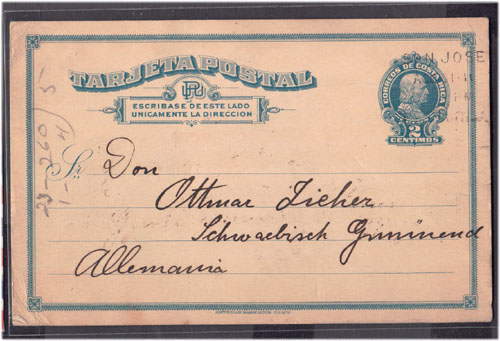 TARJETA POSTAL
ESCRIBASE DE ESTE LADO
UNICAMENTE LA DIRECCION
CORREOS DE COSTA RICA
2
CENTIMOS
SAN JOSE
23-260/5-
Sr. Don
Ottmar Zieher
Schwaebisch Gmünend
Allemania